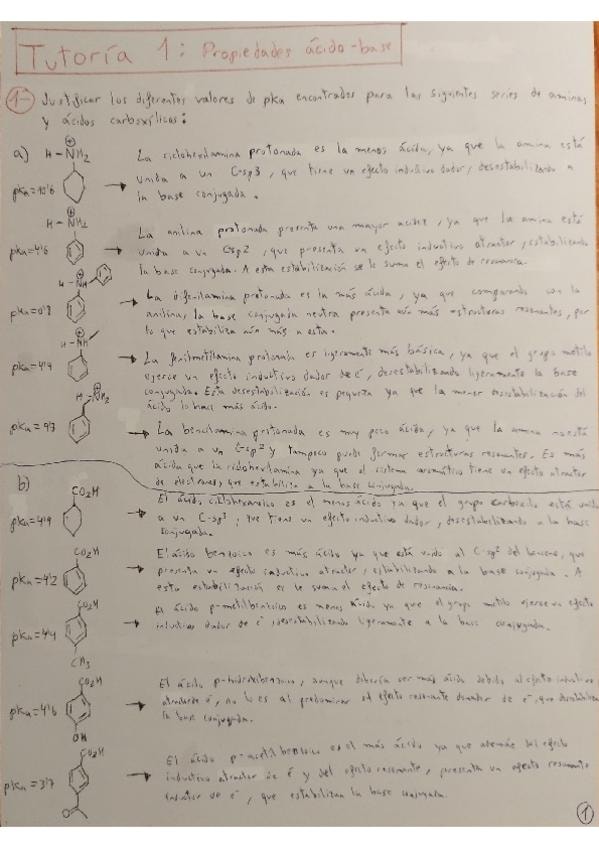 Tutoría 1: Propiedades ácido-base
1- Justificar los diferentes valores de pka encontrados para las siguientes series de aminas
y ácidos carboxílicos:
a) H-NH2 ⊕
La ciclohexilamina protonada es la menos ácida, ya que la amina está
unida a un Csp3, que tiene un efecto inductivo dador, desestabilizando a
la base conjugada.
pKa=10'6
H-NH2 ⊕
La anilina protonada presenta una mayor acidez, ya que la amina está
pKa=4'6
unida a un Csp2, que presenta un efecto inductivo atractor, estabilizando
la base conjugada. A esta estabilización se le suma el efecto de resonancia.
H-NH ⊕
La difenilamina protonada es la más ácida, ya que comparando con la
pKa=0'8
anilina, la base conjugada neutra presenta aún más estructuras resonantes, por
lo que estabiliza aún más a esta.
H-NH ⊕
La fenilmetilamina protonada es ligeramente más básica, ya que el grupo metilo
pKa=4'9
ejerce un efecto inductivo dador de é, desestabilizando ligeramente la base
conjugada. Esta desestabilización es pequeña ya que la menor del
ácido lo hace más ácido.
H-NH2 ⊕
pKa=9'3
La bencilamina protonada es muy poco ácida, ya que la amina no está
unida a un Csp2 y tampoco puede formar estructuras resonantes. Es más
ácida que la ciclohexilamina ya que el sistema aromático tiene un efecto atractor
de electrones, que estabiliza a la base conjugada.
b) CO2H
El ácido es el menos ácido ya que el grupo carboxilo está unido
pKa=4'9
a un C-sp3, que tiene un efecto inductivo dador, desestabilizando a la base
conjugada.
CO2H
El ácido benzoico es más ácido ya que está unido al C-sp2 del benceno, que
pKa=4'2
presenta un efecto inductivo atractor, estabilizando a la base conjugada. A
esta estabilización se le suma el efecto de resonancia.
CO2H
El ácido p-metilbenzoico es menos ácido ya que el grupo metilo ejerce un efecto
pKa=4'4
inductivo dador de é desestabilizando ligeramente a la base conjugada.
CH3
CO2H
El ácido p-hidroxibenzoico, aunque debería ser más ácido debido al efecto inductivo
pKa=4'6
de é, no lo es al predominar el efecto resonante donador de é, que desestabiliza
la base conjugada.
OH
CO2H
El ácido p-acetilbenzoico es el más ácido ya que además del efecto
pKa=3'7
inductivo atractor de é y del efecto resonante, presenta un efecto resonante
de é, que estabilizan la base conjugada.
1